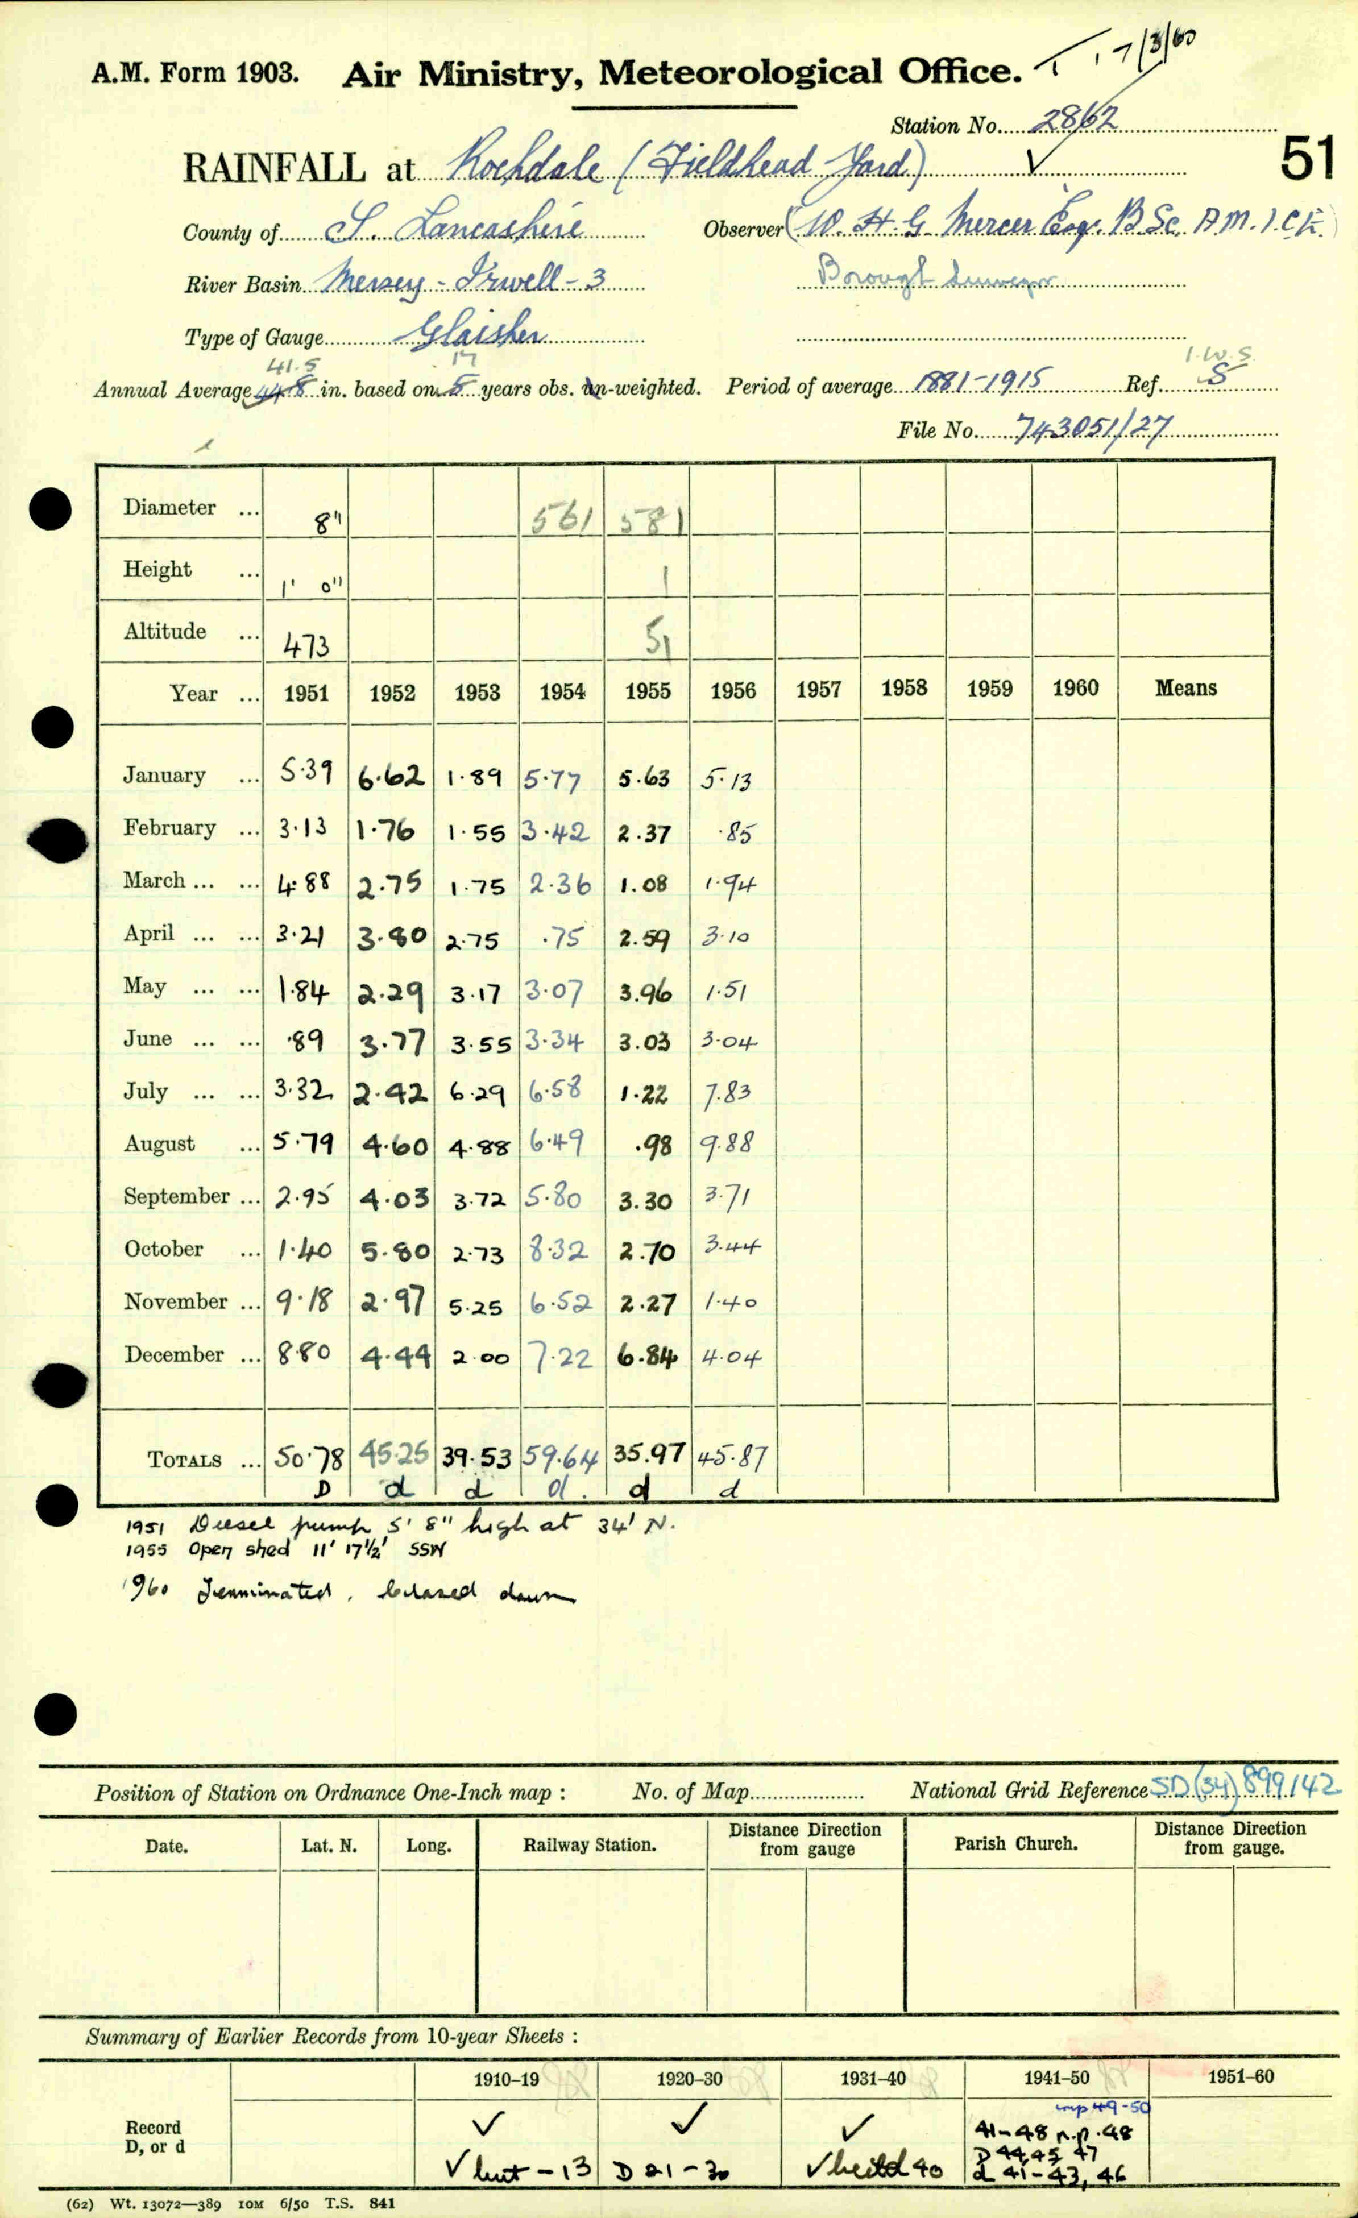 T. 17/3/60
A.M. Form 1903. Air Ministry, Meteorological Office.
Station No. 2862
51
RAINFALL at Rochdale (Fieldhead Yard)
County of S. Lancashire Observer (W. H. G. Mercer Esq. B.Sc. A.M.I.C.E.)
River Basin Mersey - Irwell - 3 Borough Surveyor
Type of Gauge Glaisher
41.5 17 I.W.S.
Annual Average 44.8 in. based on 5 years obs. un-weighted. Period of average 1881-1915 Ref. S
File No. 743051/27
Diameter ... 8" 561 581
Height ... 1' 0" 1
Altitude ... 473 51
Year ... 1951 1952 1953 1954 1955 1956 1957 1958 1959 1960 Means
January ... 5.39 6.62 1.89 5.77 5.63 5.13
February ... 3.13 1.76 1.55 3.42 2.37 .85
March ... ... 4.88 2.75 1.75 2.36 1.08 1.94
April ... ... 3.21 3.80 2.75 .75 2.59 3.10
May ... ... 1.84 2.29 3.17 3.07 3.96 1.51
June ... ... .89 3.77 3.55 3.34 3.03 3.04
July ... ... 3.32 2.42 6.29 6.58 1.22 7.83
August ... 5.79 4.60 4.88 6.49 .98 9.88
September ... 2.95 4.03 3.72 5.80 3.30 3.71
October ... 1.40 5.80 2.73 8.32 2.70 3.44
November ... 9.18 2.97 5.25 6.52 2.27 1.40
December ... 8.80 4.44 2.00 7.22 6.84 4.04
TOTALS ... 50.78 45.25 39.53 59.64 35.97 45.87
D d d d. d d
1951 Diesel pump 5' 8" high at 34' N.
1955 Open shed 11' 17½' SSW
1960 Terminated. Closed down
Position of Station on Ordnance One-Inch map : No. of Map National Grid Reference SD (34) 899142
Date. Lat. N. Long. Railway Station. Distance Direction from gauge Parish Church. Distance Direction from gauge.
Summary of Earlier Records from 10-year Sheets :
1910-19 1920-30 1931-40 1941-50 1951-60
Record D, or d
✓ ✓ ✓ 49-50
41-48 n.p. 48
✓ but -13 D 21-30 ✓ 40 D 44,45, 47
d 41-43, 46
(62) Wt. 13072—389 10M 6/50 T.S. 841